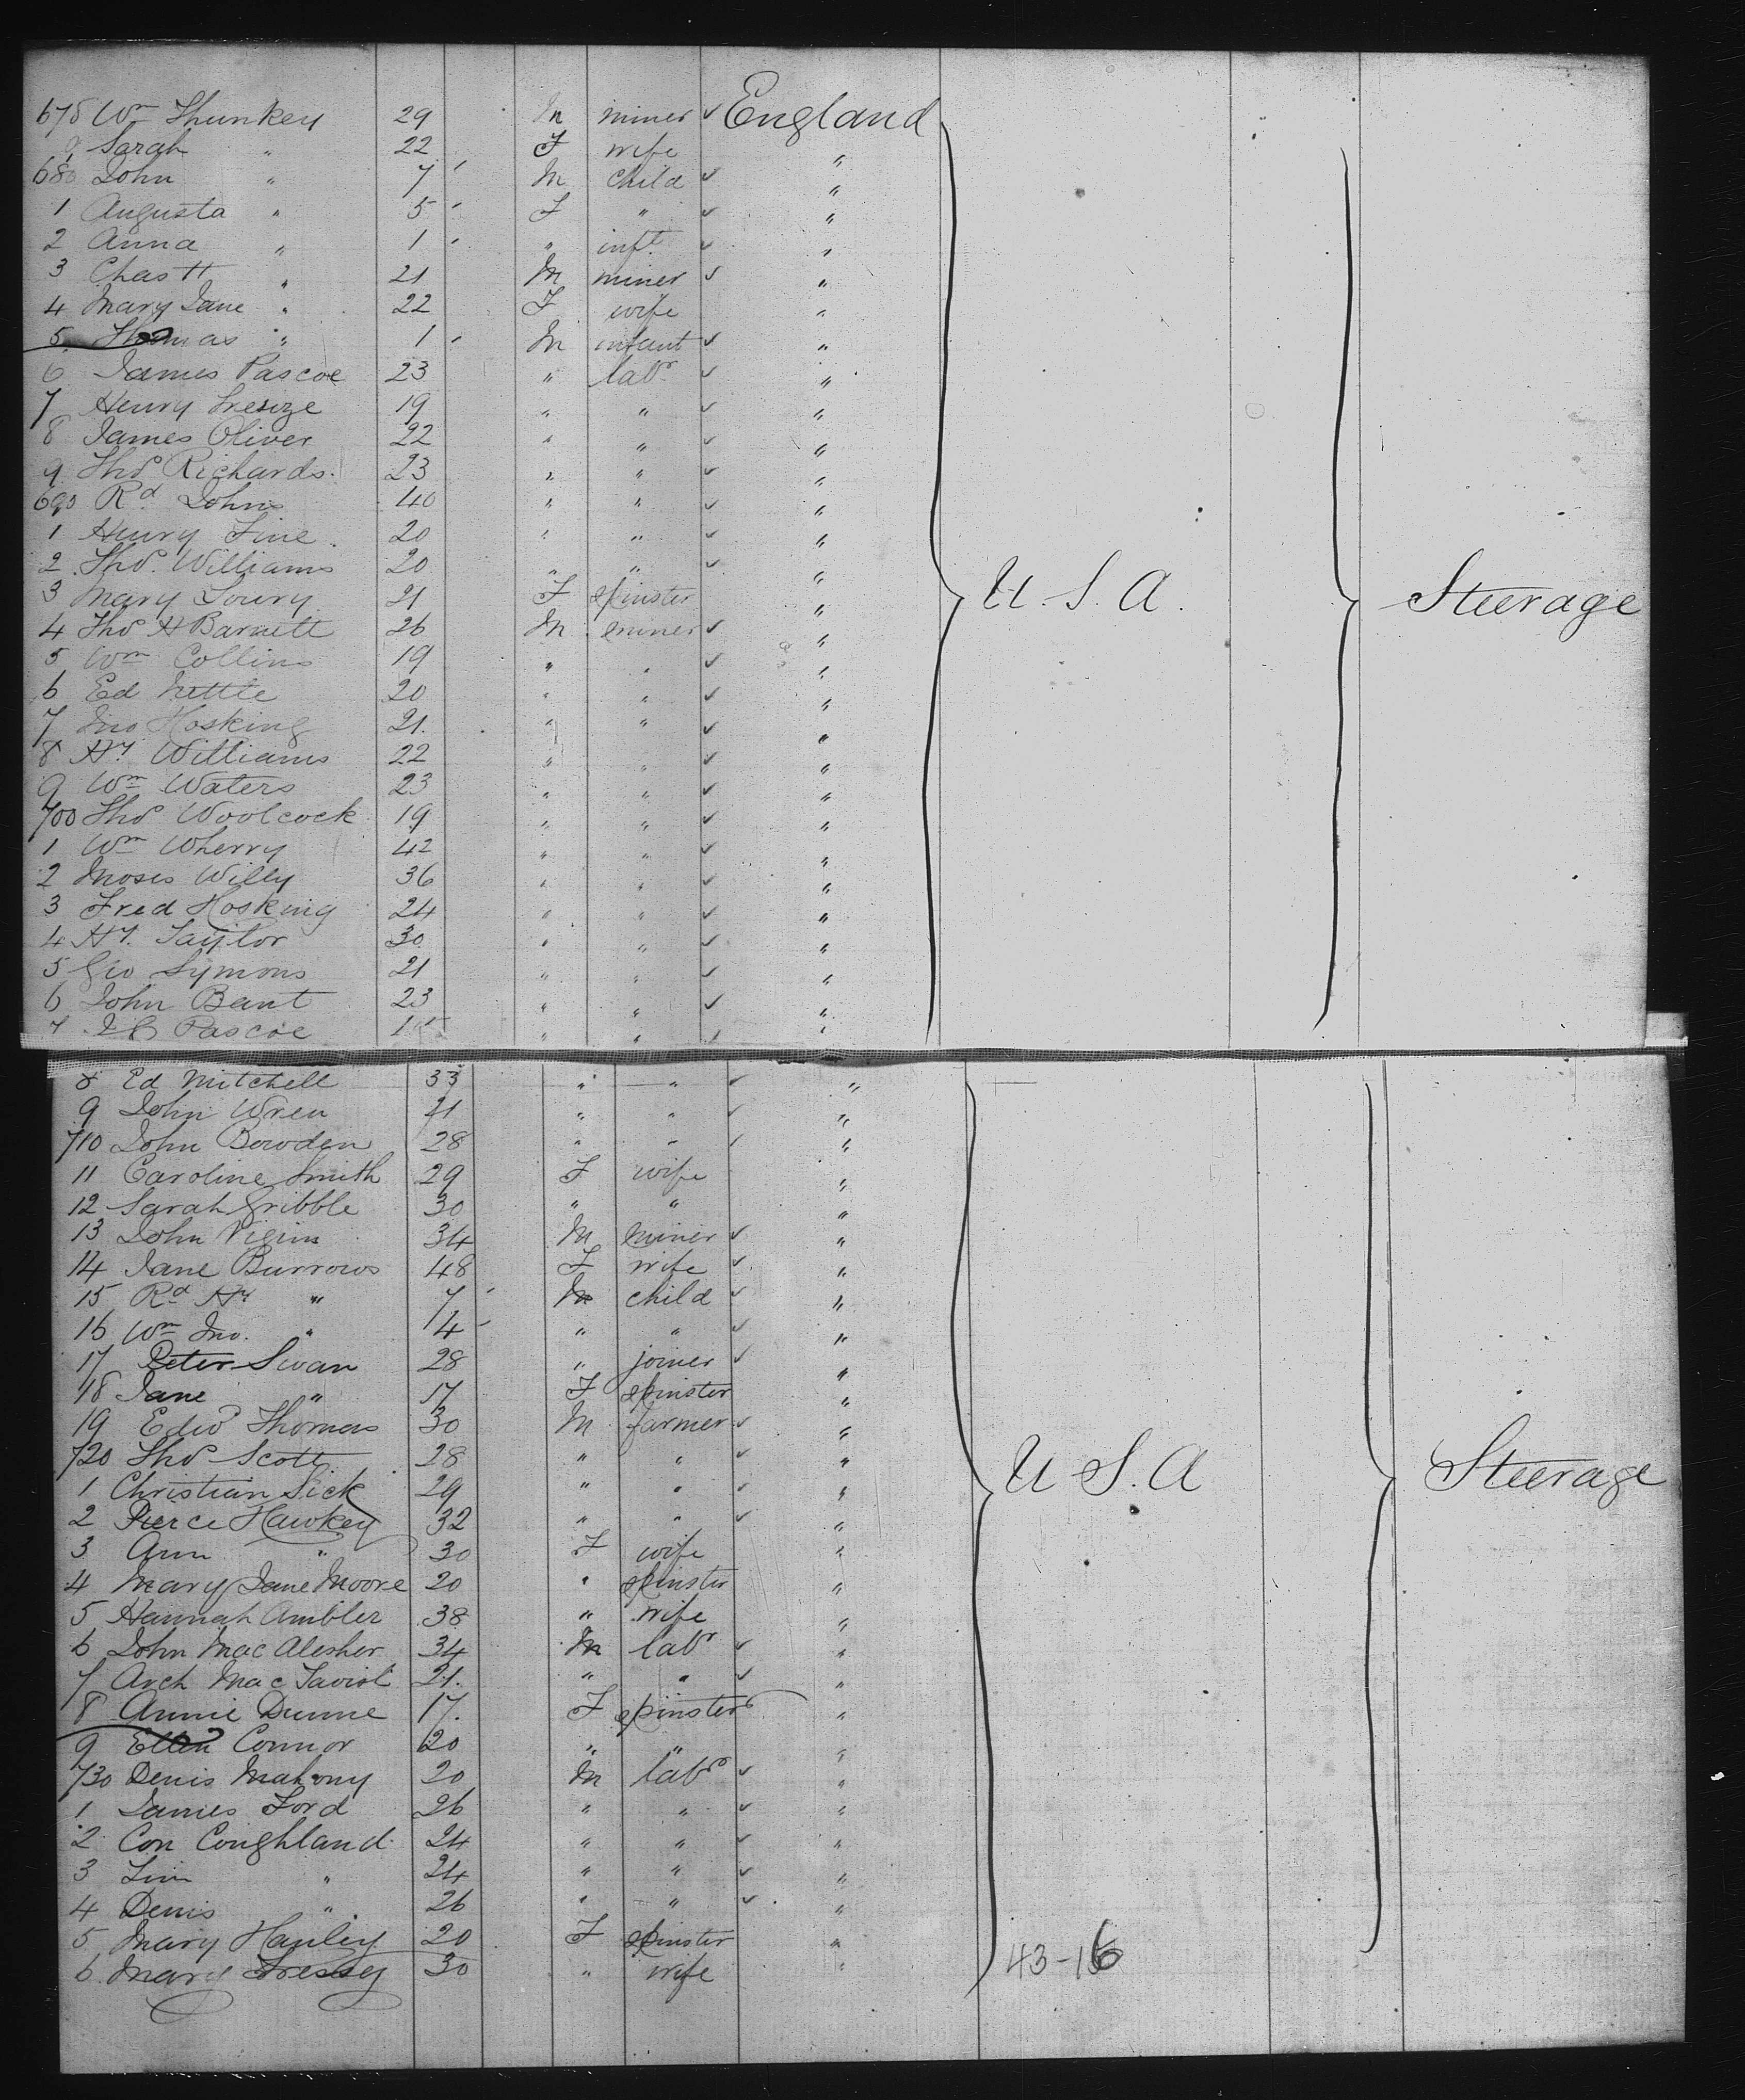 678 Wm Thunkey 29 M miner ✓ England
9 Sarah " 22 F wife "
680 John " 7 M child ✓ "
1 Augusta " 5 F " ✓ "
2 Anna " 1 " inft ✓ "
3 Chas H " 21 M miner ✓ "
4 Mary Jane " 22 F wife "
5 Thomas " 1 M infant ✓ "
6 James Pascoe 23 " labr ✓ "
7 Henry Tresize 19 " " ✓ "
8 James Oliver 22 " " ✓ "
9 Thos Richards 23 " " ✓ "
690 Rd Johns 40 " " ✓ "
1 Henry Fine 20 " " ✓ "
2 Thos. Williams 20 " " ✓ "
3 Mary Lowry 21 F spinster "
U. S. A. Steerage
4 Thos H Barnett 26 M miner ✓ "
5 Wm Collins 19 " " ✓ "
6 Ed Nettle 20 " " ✓ "
7 Jno Hosking 21. " " ✓ "
8 Hy Williams 22 " " ✓ "
9 Wm Waters 23 " " ✓ "
700 Thos Woolcock 19 " " ✓ "
1 Wm Wherry 42 " " ✓ "
2 Moses Willy 36 " " ✓ "
3 Fred Hosking 24 " " ✓ "
4 Hy. Taylor 30 " " ✓ "
5 Geo Symons 21 " " ✓ "
6 John Bant 23 " " ✓ "
7 Pascoe " " ✓ "
8 Ed Mitchell 33 " " ✓ "
9 John Wren 21 " " ✓ "
710 John Bowden 28 " " ✓ "
11 Caroline Smith 29 F wife "
12 Sarah Gribble 30 " " "
13 John 34 M miner ✓ "
14 Jane Burrows 48 F wife ✓ "
15 Rd Hy " 7 M child ✓ "
16 Wm Jno. " 4 " " ✓ "
17 Peter Swan 28 " joiner ✓ "
18 Jane " 17 F spinster "
19 Edwd Thomas 30 M farmer ✓ "
720 Thos Scott 28 " " ✓ "
U S. A Steerage
1 Christian Sick 29 " " ✓ "
2 Pierce Hawkey 32 " " ✓ "
3 Ann " 30 F wife "
4 Mary Jane Moore 20 " spinster "
5 Hannah Ambler 38 " wife "
6 John Mac Alesher 34 M labr ✓ "
7 Arch Mac Tavist 21. " " ✓ "
8 Annie Dunne 17. F spinster "
9 Ellen Connor 20 " " "
730 Denis Mahony 20 M labr ✓ "
1 James Ford 26 " " ✓ "
2 Con Coughland 24 " " ✓ "
3 Tim " 24 " " ✓ "
4 Denis " 26 " " ✓ "
5 Mary Hanley 20 F spinster "
6 Mary 30 " wife "
43-16